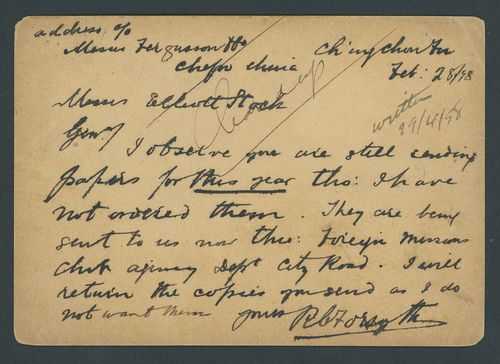 address c/o
Messrs Fergusson & Co Ching Chou Fu
Chefoo China Feb: 28/98
Messrs Elliott Stock
written
29/4/98
Gen.
I observe you are still sending
papers for this year tho: I have
not ordered them. They are being
sent to us now thro: Foreign Missions
Club agency Dept City Road. I will
retain the copies you send as I do
not want them yours R C Forsyth